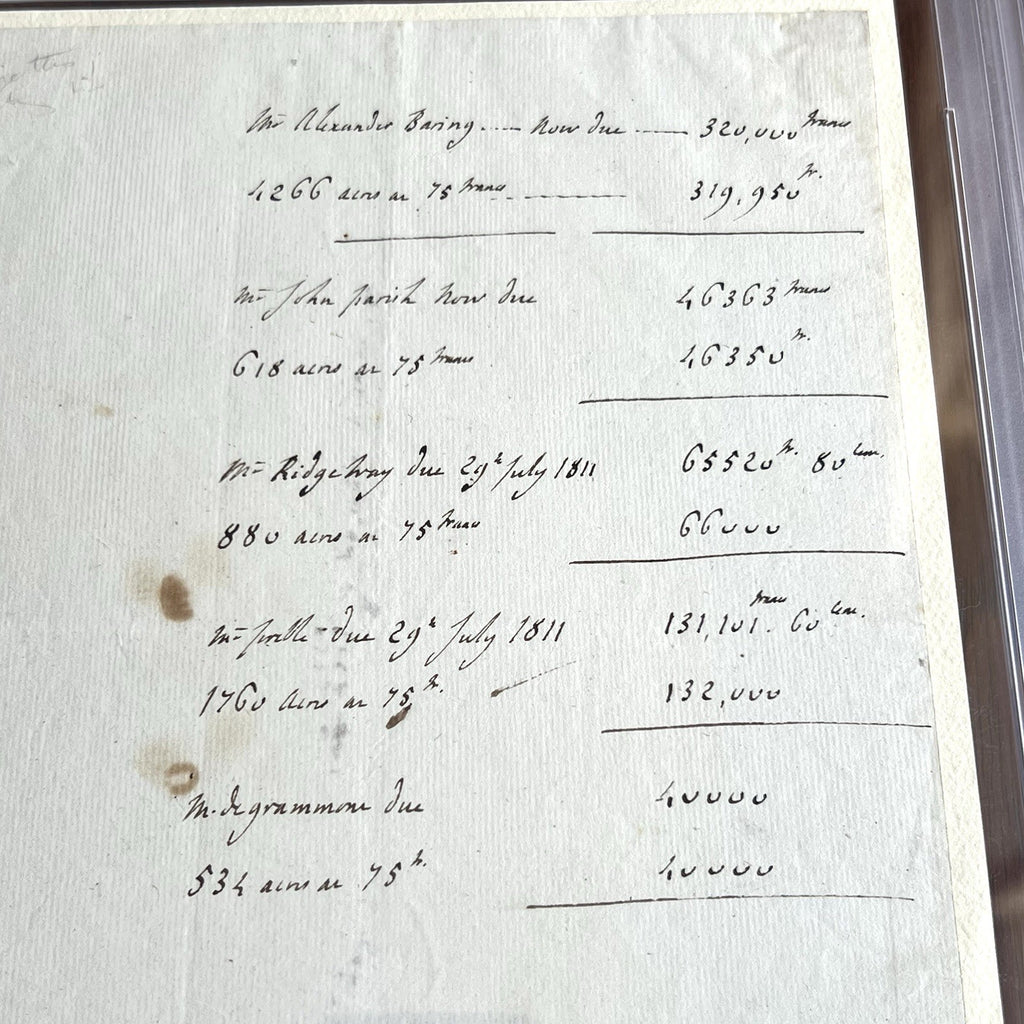 Mr Alexander Baring .... Now due — 320,000 francs
4266 acres at 75 francs — 319,950 fr.
Mr John parish Now due 46363 francs
618 acres at 75 francs 46350 fr.
Mr RidgeWay due 29th July 1811 65520 fr. 80 Cent.
880 acres at 75 francs 66000
Mr due 29th July 1811 131,101. francs 60 Cent.
1760 acres at 75 fr. 132,000
M. de grammont due 40000
534 acres at 75 fr. 40000